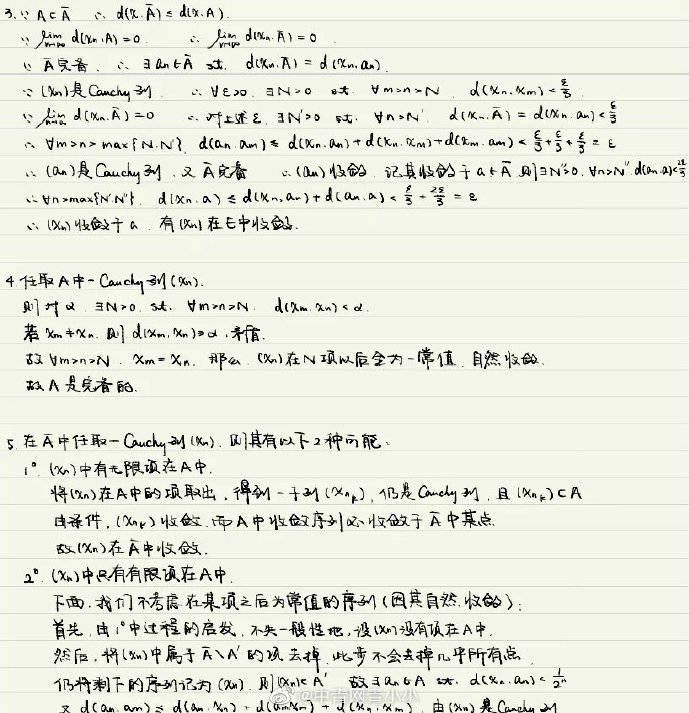 3. ∵ A⊂Ā ∴ d(x,Ā) ≤ d(x,A).
∵ lim_{n→∞} d(xn,A)=0 ∴ lim_{n→∞} d(xn,Ā)=0
∵ Ā完备 ∴ ∃an∈Ā st. d(xn,Ā) = d(xn,an)
∵ (xn)是Cauchy列 ∴ ∀ε>0, ∃N>0 st. ∀m>n>N, d(xn,xm)<ε/3
∵ lim_{n→∞} d(xn,Ā)=0 ∴ 对上述ε, ∃N'>0 st. ∀n>N' d(xn,Ā) = d(xn,an)<ε/3
∴ ∀m>n>max{N,N'}, d(an,am) ≤ d(xn,an)+d(xn,xm)+d(xm,am) < ε/3+ε/3+ε/3 = ε
∴ (an)是Cauchy列, 又Ā完备 ∴ (an)收敛, 记其收敛于a∈Ā, 则∃N''>0, ∀n>N'' d(an,a)<2ε/3
∴ ∀n>max{N',N''}, d(xn,a) ≤ d(xn,an)+d(an,a) < ε/3+2ε/3 = ε
∴ (xn)收敛于a, 有(xn)在E中收敛.
4. 任取A中一Cauchy列(xn).
则对α, ∃N>0, st. ∀m>n>N, d(xm,xn)<α.
若xm≠xn, 则d(xm,xn)≥α, 矛盾.
故∀m>n>N, xm=xn, 那么, (xn)在N项以后全为一常值, 自然收敛.
故A是完备的.
5. 在Ā中任取一Cauchy列(xn), 则其有以下2种可能:
1°. (xn)中有无限项在A中.
将(xn)在A中的项取出, 得到一子列(xnk), 仍是Cauchy列, 且(xnk)⊂A
由条件, (xnk)收敛, 而A中收敛序列必收敛于Ā中某点
故(xn)在Ā中收敛.
2°. (xn)中只有有限项在A中.
下面, 我们不考虑在某项之后为常值的序列(因其自然收敛):
首先, 由1°中过程的启发, 不失一般性地, 设(xn)没有项在A中.
然后, 将(xn)中属于Ā\A'的项去掉, 此步不会去掉几乎所有点
仍将剩下的序列记为(xn), 则(xn)⊂A' 故∃an∈A st. d(xn,an)<1/2ⁿ
又d(an,am) ≤ d(an,xn)+d(am,xm)+d(xn,xm), 由(xn)是Cauchy列